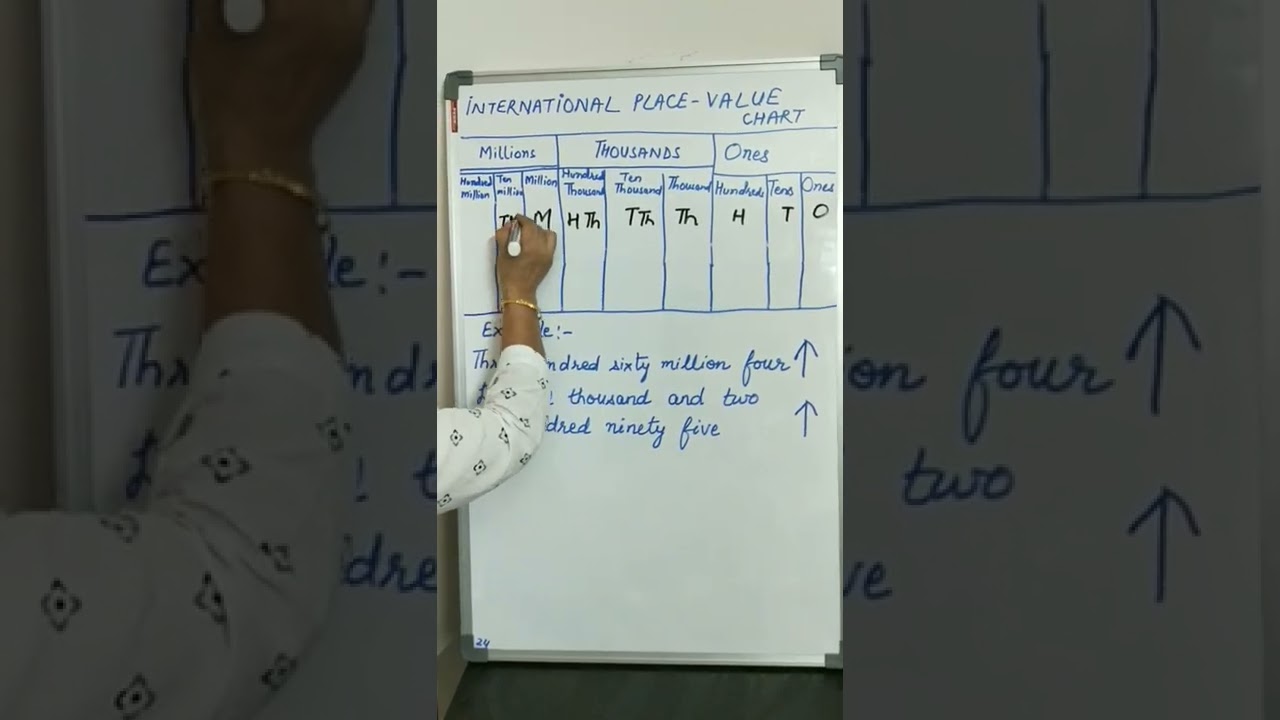 INTERNATIONAL PLACE-VALUE
CHART
Millions THOUSANDS Ones
Hundred Million Ten million Million Hundred Thousand Ten Thousand Thousand Hundreds Tens Ones
M H Th T Th Th H T O
:-
hundred sixty million four
thousand and two
ninety five
24